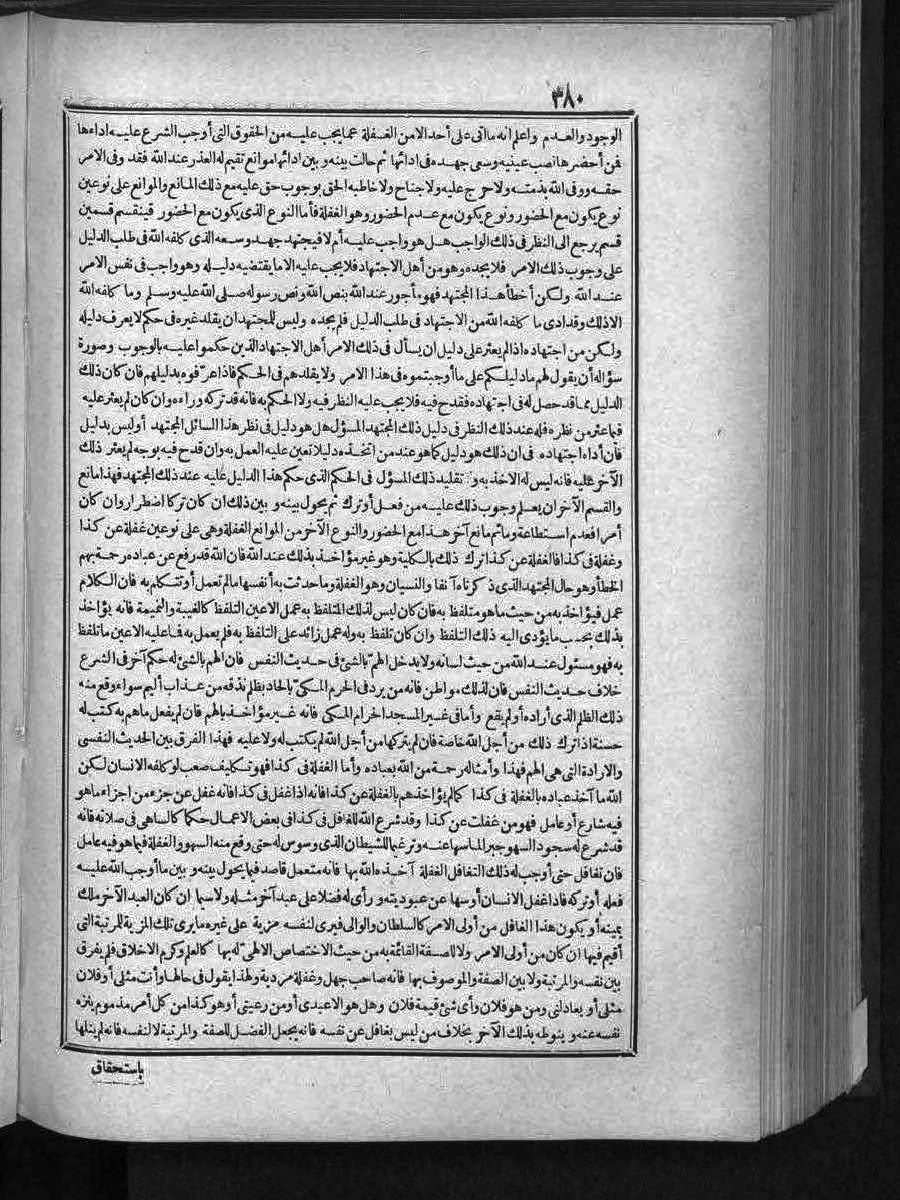 ٣٨٠
الوجود والعدم واعلم انه ما أتى على أحد الا من الغفلة عما يجب عليه من الحقوق التى أوجب الشرع عليه اداءها
فمن أحضرها نصب عينيه وسعى جهده فى ادائها ثم حالت بينه وبين ادائها موانع تقيم له العذر عند الله فقد وفى الامر
حقه ووفى الله بذمته ولا حرج عليه ولا جناح ولا خاطبه الحق بوجوب حق عليه مع ذلك المانع والموانع على نوعين
نوع يكون مع الحضور ونوع يكون مع عدم الحضور وهو الغفلة فأما النوع الذى يكون مع الحضور فينقسم قسمين
قسم يرجع الى النظر فى ذلك الواجب هل هو واجب عليه أم لا فيجتهد جهد وسعه الذى كلفه الله فى طلب الدليل
على وجوب ذلك الامر فلا يجده وهو من أهل الاجتهاد فلا يجب عليه الا ما يقتضيه دليله وهو واجب فى نفس الامر
عند الله ولكن أخطأ هذا المجتهد فهو مأجور عند الله بنص الله ونص رسوله صلى الله عليه وسلم وما كلفه الله
الا ذلك وقد ادى ما كلفه الله من الاجتهاد فى طلب الدليل فلم يجده وليس للمجتهد ان يقلد غيره فى حكم لا يعرف دليله
ولكن من اجتهاده اذا لم يعثر على دليل ان يسأل فى ذلك الامر أهل الاجتهاد الذين حكموا عليه بالوجوب وصورة
سؤاله أن يقول لهم ما دليلكم على ما أوجبتموه فى هذا الامر ولا يقلدهم فى الحكم فاذا عرّفوه بدليلهم فان كان ذلك
الدليل مما قد حصل له فى اجتهاده فقدح فيه فلا يجب عليه النظر فيه ولا الحكم به فانه قد تركه وراءه وان كان لم يعثر عليه
فيما عثر من نظره فله عند ذلك النظر فى دليل ذلك المجتهد المسؤل هل هو دليل فى نظر هذا السائل المجتهد أو ليس بدليل
فان أداه اجتهاده فى ان ذلك هو دليل كما هو عند من اتخذه دليلا تعين عليه العمل به وان قدح فيه بوجه لم يعثر ذلك
الآخر عليه فانه ليس له الاخذ به ولا تقليد ذلك المسؤل فى الحكم الذى حكم هذا الدليل عليه عند ذلك المجتهد فهذا مانع
والقسم الآخر ان يعلم وجوب ذلك عليه من فعل أو ترك ثم يحول بينه وبين ذلك ان كان تركا اضطرار وان كان
أمرا فعدم استطاعة وما ثم مانع آخر هذا مع الحضور والنوع الآخر من الموانع الغفلة وهى على نوعين غفلة عن كذا
وغفلة فى كذا فالغفلة عن كذا ترك ذلك بالكلية وهو غير مؤاخذ بذلك عند الله فان الله قد رفع عن عباده رحمة بهم
الخطأ وهو حال المجتهد الذى ذكرناه آنفا والنسيان وهو الغفلة وما حدثت به أنفسها ما لم تعمل أو تتكلم به فان الكلام
عمل فيؤاخذ به من حيث ما هو متلفظ به فان كان ليس لذلك المتلفظ به عمل الا عين التلفظ كالغيبة والنميمة فانه يؤاخذ
بذلك بحسب ما يؤدى اليه ذلك التلفظ وان كان تلفظ به وله عمل زائد على التلفظ به فلم يعمل به فما عليه الا عين ما تلفظ
به فهو مسئول عند الله من حيث لسانه ولا يدخل الهمّ بالشئ فى حديث النفس فان الهم بالشئ له حكم آخر فى الشرع
خلاف حديث النفس فان لذلك مواطن فانه من يرد فى الحرم المكىّ بالحاد بظلم نذقه من عذاب أليم سواء وقع منه
ذلك الظلم الذى أراده أو لم يقع وأما فى غير المسجد الحرام المكى فانه غير مؤاخذ بالهم فان لم يفعل ما هم به كتب له
حسنة اذا ترك ذلك من أجل الله خاصة فان لم يتركها من أجل الله لم يكتب له ولا عليه فهذا الفرق بين الحديث النفسى
والارادة التى هى الهم فهذا وأمثاله رحمة من الله بعباده وأما الغفلة فى كذا فهو تكليف صعب لو كلفه الانسان لكن
الله ما آخذ عباده بالغفلة فى كذا كما لم يؤاخذهم بالغفلة عن كذا فانه اذا غفل فى كذا فانه غفل عن جزء من اجزاء ما هو
فيه شارع أو عامل فهو من غفلت عن كذا وقد شرع الله للغافل فى كذا فى بعض الاعمال حكما كالساهى فى صلاته فانه
قد شرع له سجود السهو جبرا لما سها عنه وترغيما للشيطان الذى وسوس له حتى وقع منه السهو والغفلة فيما هو فيه عامل
فان تغافل حتى أوجب له ذلك التغافل الغفلة آخذه الله بها فانه متعمل قاصد فيما يحول بينه وبين ما أوجب الله عليه
فعله أو تركه فاذا غفل الانسان أو سها عن عبوديته ورأى له فضلا على عبد آخر مثله ولا سيما ان كان العبد الآخر ملك
يمينه أو يكون هذا الغافل من أولى الامر كالسلطان والوالى فيرى لنفسه مزية على غيره ما يرى تلك المزية للمرتبة التى
أقيم فيها ان كان من أولى الامر ولا للصفة القائمة به من حيث الاختصاص الالهىّ له بها كالعلم وكرم الاخلاق فلم يفرق
بين نفسه والمرتبة ولا بين الصفة والموصوف بها فانه صاحب جهل وغفلة مردية ولهذا يقول فى حالها وأنت مثلى أو فلان
مثلى أو يعادلنى ومن هو فلان وأى شئ قيمة فلان وهل هو الا عبدى أو من رعيتى أو هو كذا من كل أمر مذموم ينزه
نفسه عنه وينوطه بذلك الآخر بخلاف من ليس بغافل عن نفسه فانه يجعل الفضل للصفة والمرتبة لا لنفسه فانه لم ينلها
باستحقاق